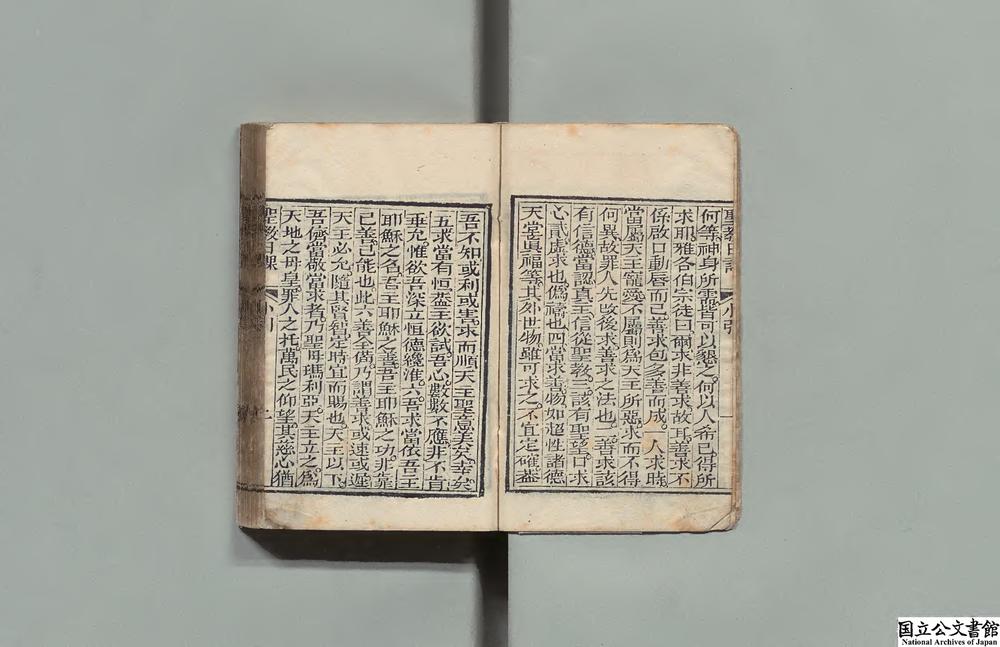 聖教日課 小引 一
何等神身所需皆可以懇之何以人希已得所
求耶雅各伯宗徒曰爾求非善求故耳善求不
係啟口動唇而已善求包多善而成一人求時
當屬天主寵愛不屬則為天主所惡求而不得
何異故罪人先改後求善求之法也二善求該
有信德當認真主信從聖教三該有聖望口求
心貳虛求也偽禱也四當求善物如超性諸德
天堂真福等其外世物雖可求之不宜定確蓋
吾不知或利或害求而順天主聖意美矣幸矣
五求當有恒蓋主欲試吾心數數不應非不肯
垂允惟欲吾深立恒德纔准六吾求當依吾主
耶穌之名吾主耶穌之善吾主耶穌之功非靠
己善己能也此六善全俻乃謂善求或速或遲
天主必允隨其賢智定時宜而賜也天主以下
吾儕當敬當求者乃聖母瑪利亞天主立之為
天地之母皇罪人之托萬民之仰望其慈心猶
聖教日課 小引 二
国立公文書館
National Archives of Japan